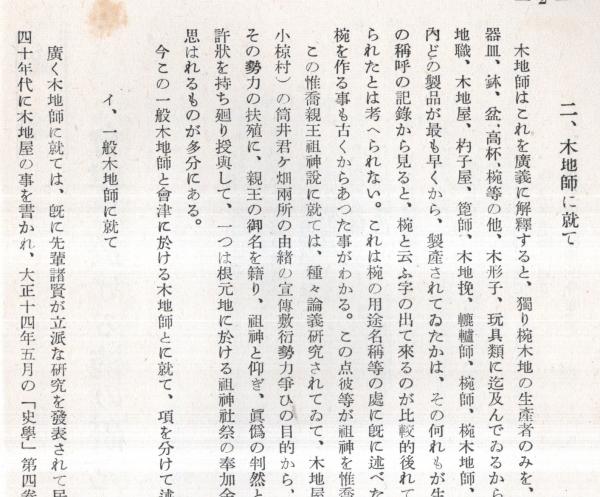 — 2 —
二、木地師に就て
木地師はこれを廣義に解釋すると、獨り椀木地の生產者のみを、
器皿、鉢、盆、高杯、椀等の他、木形子、玩具類に迄及んでゐるから
地職、木地屋、杓子屋、箆師、木地挽、轆轤師、椀師、椀木地師、
內どの製品が最も早くから、製產されてゐたかは、その何れもが生
の稱呼の記錄から見ると、椀と云ふ字の出て來るのが比較的後れて
られたとは考へられない。これは椀の用途名稱等の處に旣に述べた
椀を作る事も古くからあつた事がわかる。この点彼等が祖神を惟喬
この惟喬親王祖神說に就ては、種々論義硏究されてゐて、木地屋
小椋村）の筒井君ケ畑兩所の由緖の宣傳敷衍勢力爭ひの目的から、
その勢力の扶殖に、親王の御名を籍り、祖神と仰ぎ、眞僞の判然と
許狀を持ち廻り授與して、一つは根元地に於ける祖神社祭の奉加金
思はれるものが多分にある。
今この一般木地師と會津に於ける木地師とに就て、項を分けて述
イ、一般木地師に就て
廣く木地師に就ては、旣に先輩諸賢が立派な硏究を發表されて居
四十年代に木地屋の事を書かれ、大正十四年五月の「史學」第四卷